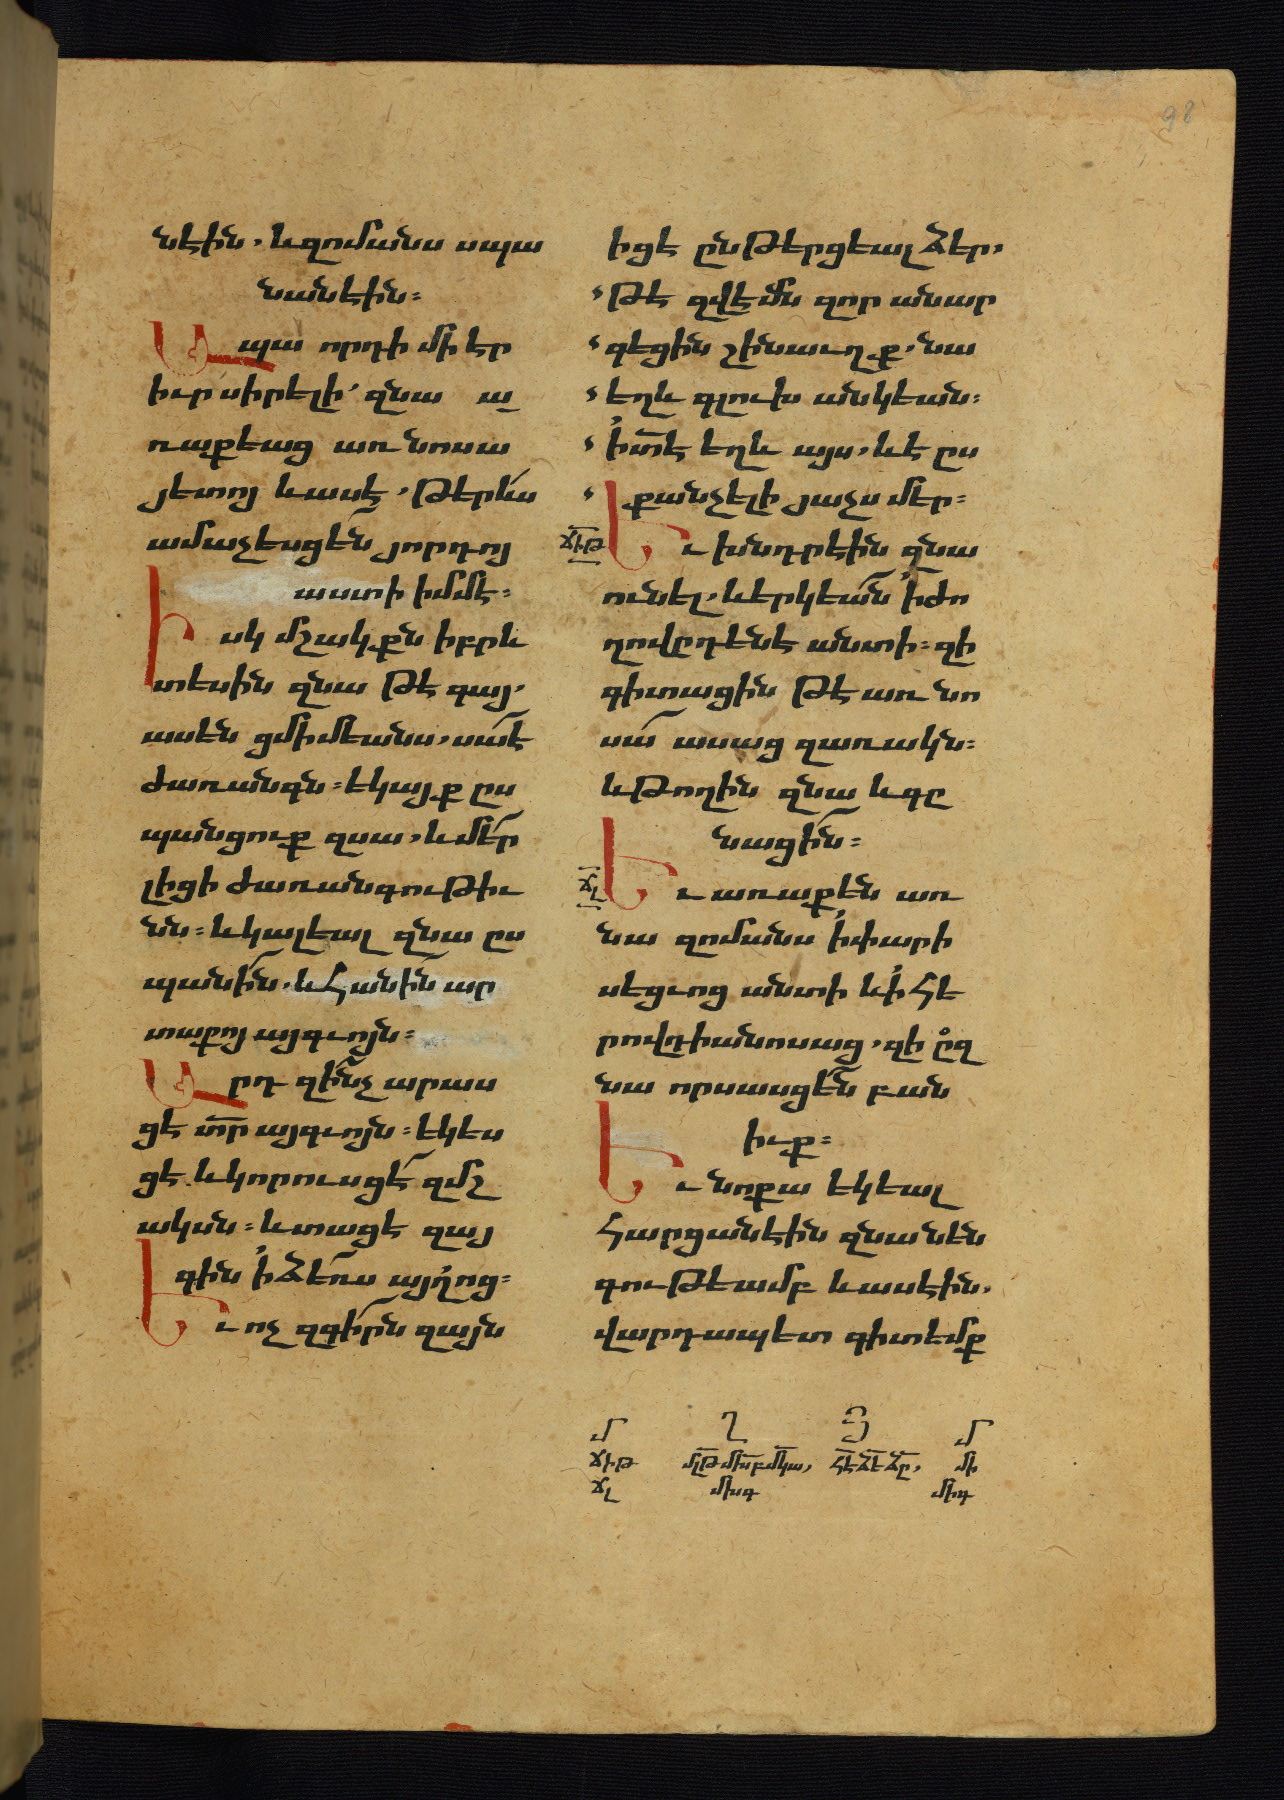 98
նէին. և զոմանս սպա
նանէին։
Ապա որդի մի էր
իւր սիրելի՝ զնա ա
ռաքեաց առ նոսա
յետոյ և ասէ, թերևս
ամաչեսցեն յորդոյ
աստի իմմէ։
Իսկ մշակքն իբրև
տեսին զնա թէ գայ,
ասեն ցմիմեանս, սա է
ժառանգն։ եկայք ըս
պանցուք զսա, և մեր
լիցի ժառանգութիւ
նն։ և կալեալ զնա ըս
պանին. և հանին ար
տաքոյ այգւոյն։
Արդ զինչ արաս
ցէ տր այգւոյն։ եկես
ցէ և կորուսցէ զմշ
ակսն։ և տացէ զայ
գին ի ձեռս այլոց։
Եւ ոչ զգիրն զայն
իցէ ընթերցեալ ձեր,
թէ զվէմն զոր անար
գեցին շինաւղք, նա
եղև գլուխ անկեան։
ի տէ եղև այս, և է ըս
քանչելի յաչս մեր։
ՃԻԹ
Եւ խնդրէին զնա
ունել. և երկեան ի ժո
ղովրդենէ անտի։ զի
գիտացին թէ առ նո
սա ասաց զառակն։
և թողին զնա և գը
նացին։
ՃԼ
Եւ առաքեն առ
նա զոմանս ի փարի
սեցւոց անտի և ի հե
րովդիանոսաց, զի ըզ
նա որսասցեն բան
իւք։
Եւ նոքա եկեալ
հարցանէին զնա նեն
գութեամբ և ասէին.
վարդապետ գիտեմք
մ ղ յ մ
ճիթ մլթ մխբ մկա, հէ ձէ ձը, մի
ճլ մխգ միգ